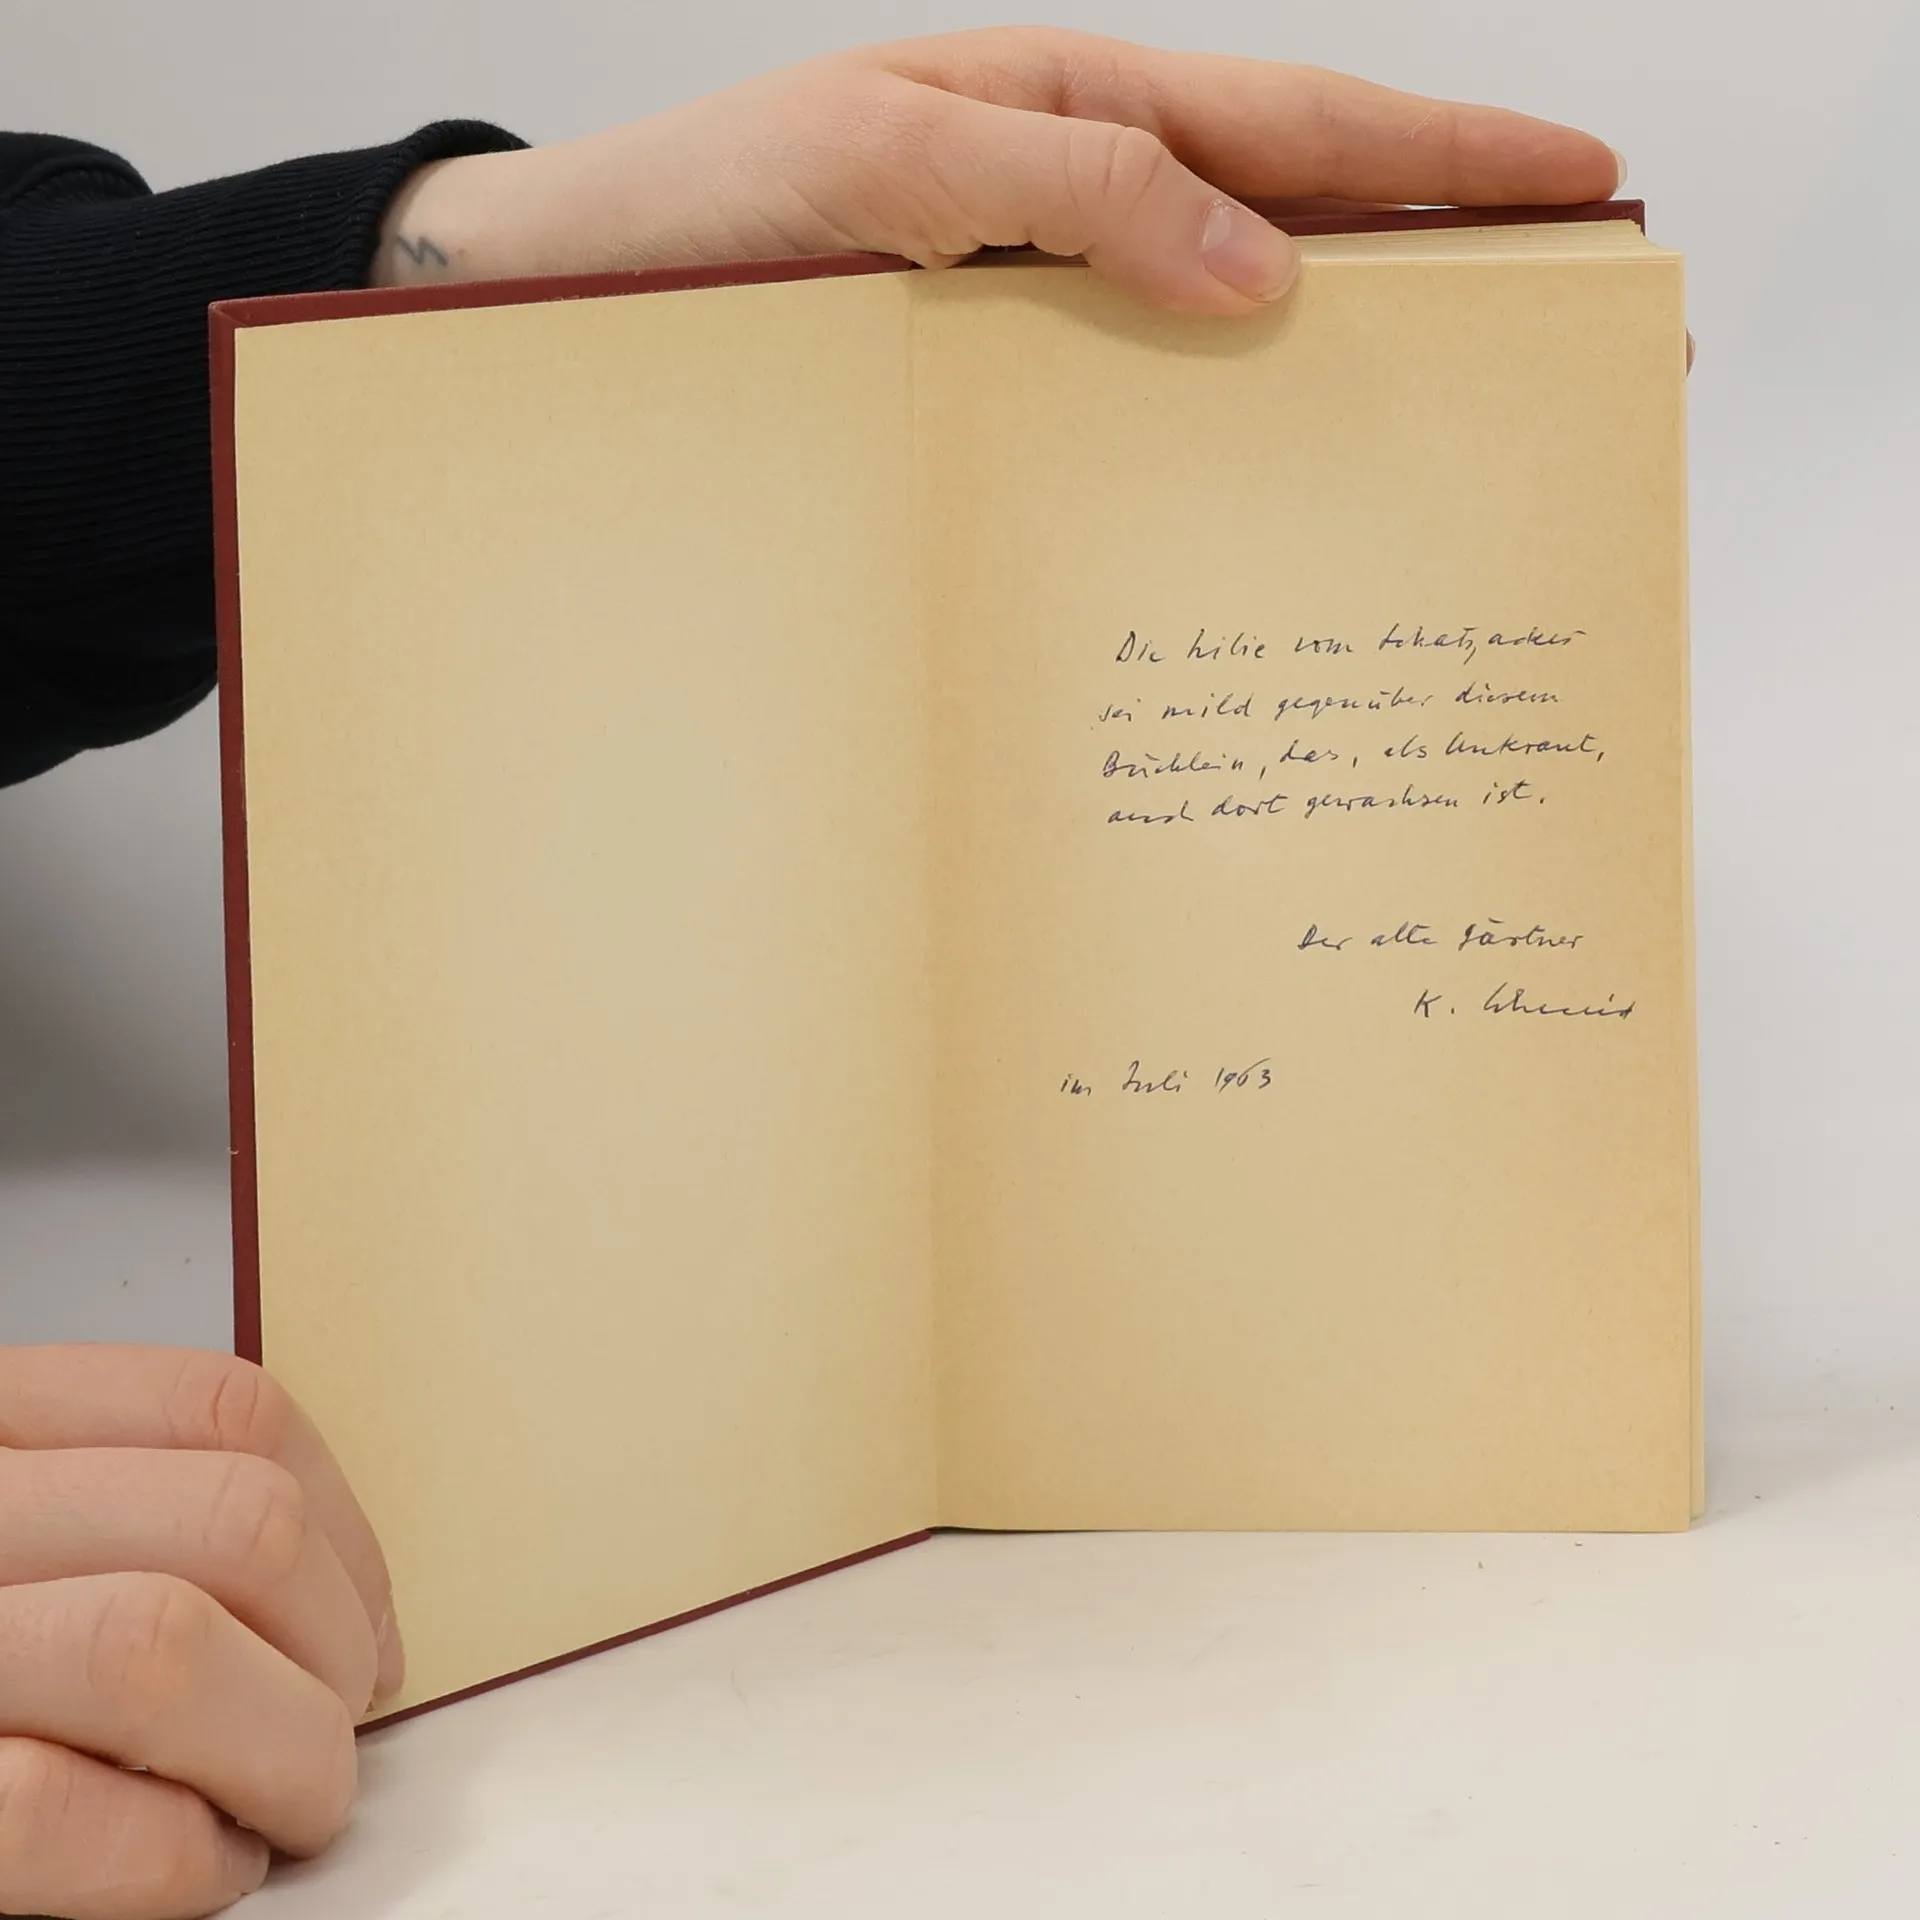 Die Lilie vom Schatzacker
sei mild gegenüber diesem
Büchlein, das, als Unkraut,
auch dort gewachsen ist.
Der alte Gärtner
K. Schmid
im Juli 1963